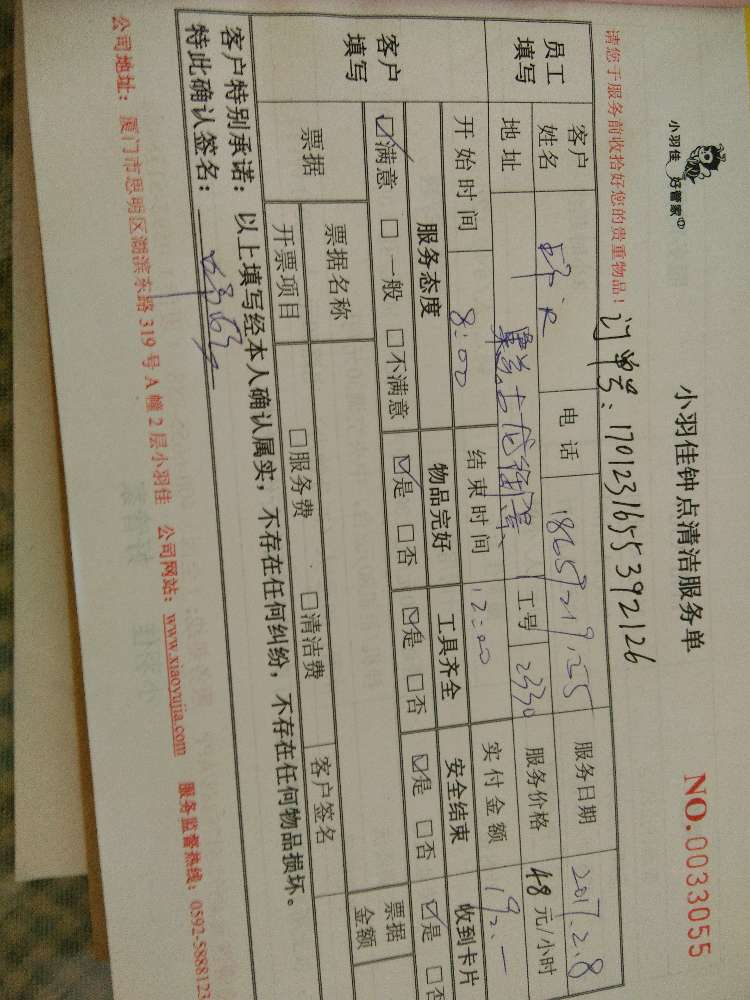 小羽佳 好管家
小羽佳钟点清洁服务单
NO.0033055
请您于服务前收拾好您的贵重物品!
订单号:1701231655392126
员工填写
客户姓名
电话
服务日期 2017.2.8
地址
工号 2330
服务价格 48元/小时
开始时间 8:00
结束时间 12:00
实付金额 192.-
客户填写
服务态度 物品完好 工具齐全 安全结束 收到卡片
☑满意 □一般 □不满意 ☑是 □否 ☑是 □否 ☑是 □否 ☑是 □否
票据
票据名称
客户签名
票据金额
开票项目 □服务费 □清洁费
客户特别承诺:以上填写经本人确认属实,不存在任何纠纷,不存在任何物品损坏。
特此确认签名:
公司地址:厦门市思明区湖滨东路319号A幢2层小羽佳 公司网站:www.xiaoyujia.com 服务监督热线:0592-5888123